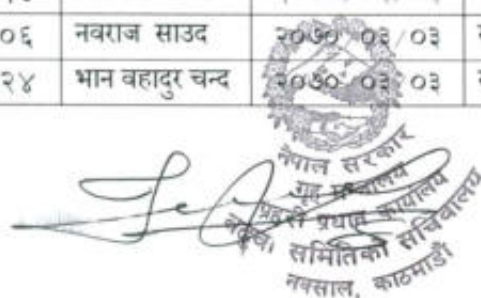 ०६ नवराज साउद २०७० ०३/०३
२४ भान वहादुर चन्द २०७० ०३ ०३
नेपाल सरकार
गृह मन्त्रालय
प्रहरी प्रधान कार्यालय
समितिको सचिवालय
नक्साल, काठमाडौं